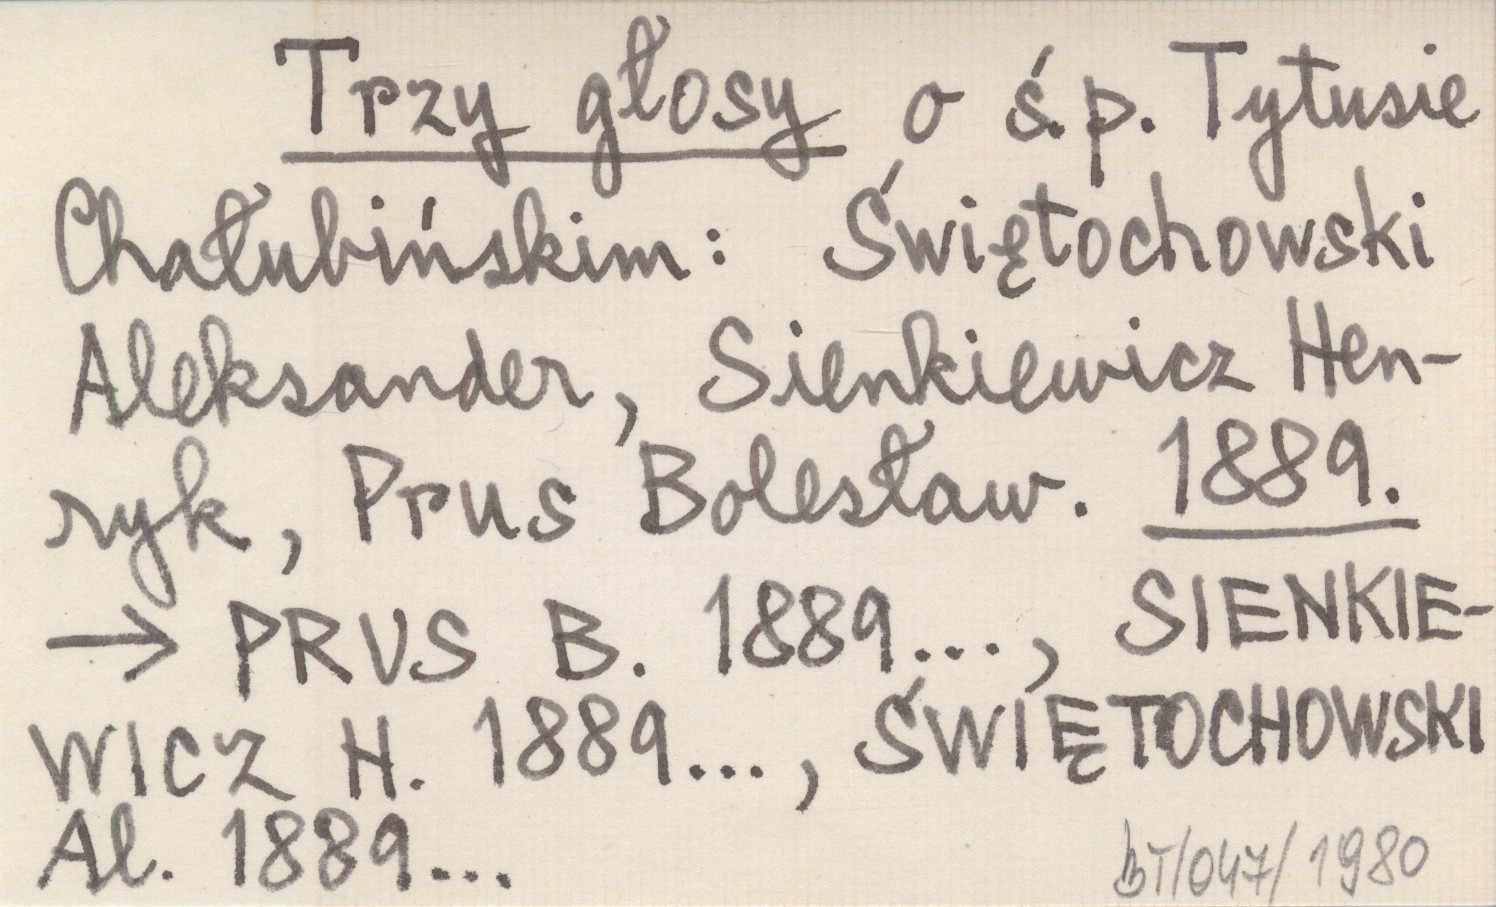 Trzy głosy o ś.p. Tytusie
Chałubińskim: Świętochowski
Aleksander, Sienkiewicz Hen-
ryk, Prus Bolesław. 1889.
→ PRUS B. 1889..., SIENKIE-
WICZ H. 1889..., ŚWIĘTOCHOWSKI
Al. 1889...
BT/047/1980